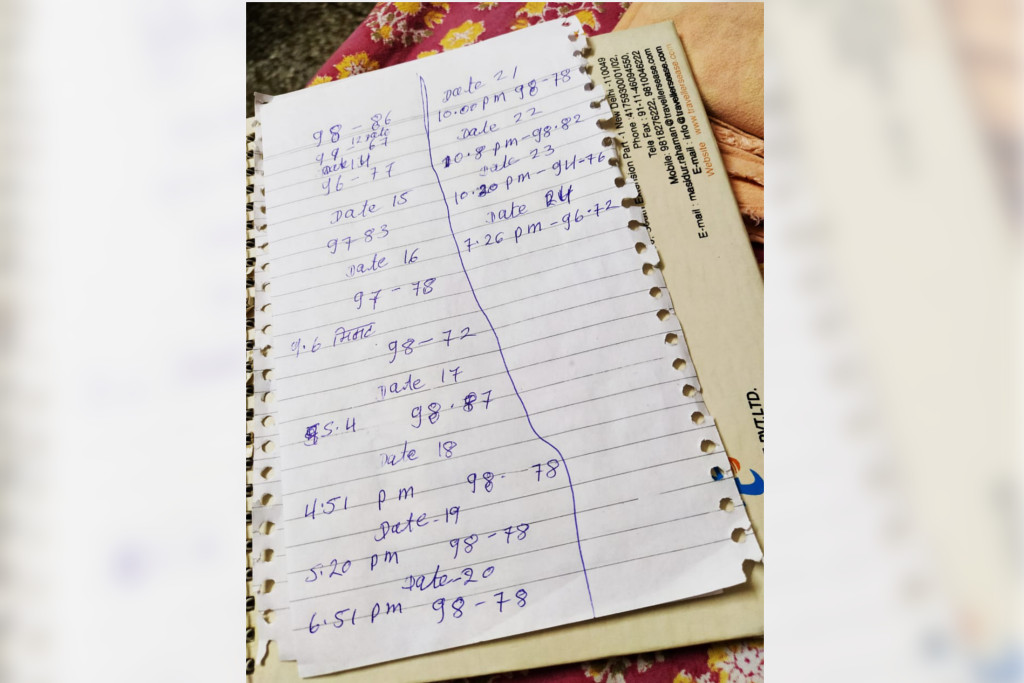 98 - 86
98 67
Date 14
96 - 77
Date 15
97 83
Date 16
97 - 78
9.6 मिनट 98 - 72
Date 17
5.4 98.87
Date 18
4:51 pm 98 - 78
Date - 19
5:20 pm 98 - 78
Date - 20
6:51 pm 98 - 78
Date 21
10.00 pm 98 - 78
Date 22
10.8 pm - 98.82
Date 23
10.20 pm - 94 - 76
Date 24
7.26 pm - 96 - 72
Extension Part -1 New Delhi -110049
Phone : 41759300/01/02,
Tele Fax : 91-11-46094550,
Mobile: 9818276222, 9810046222
E-mail : masidur.rahaman@travellersease.com
E-mail : info@travellersease.com
Website www.travellersease.com
PVT.LTD.